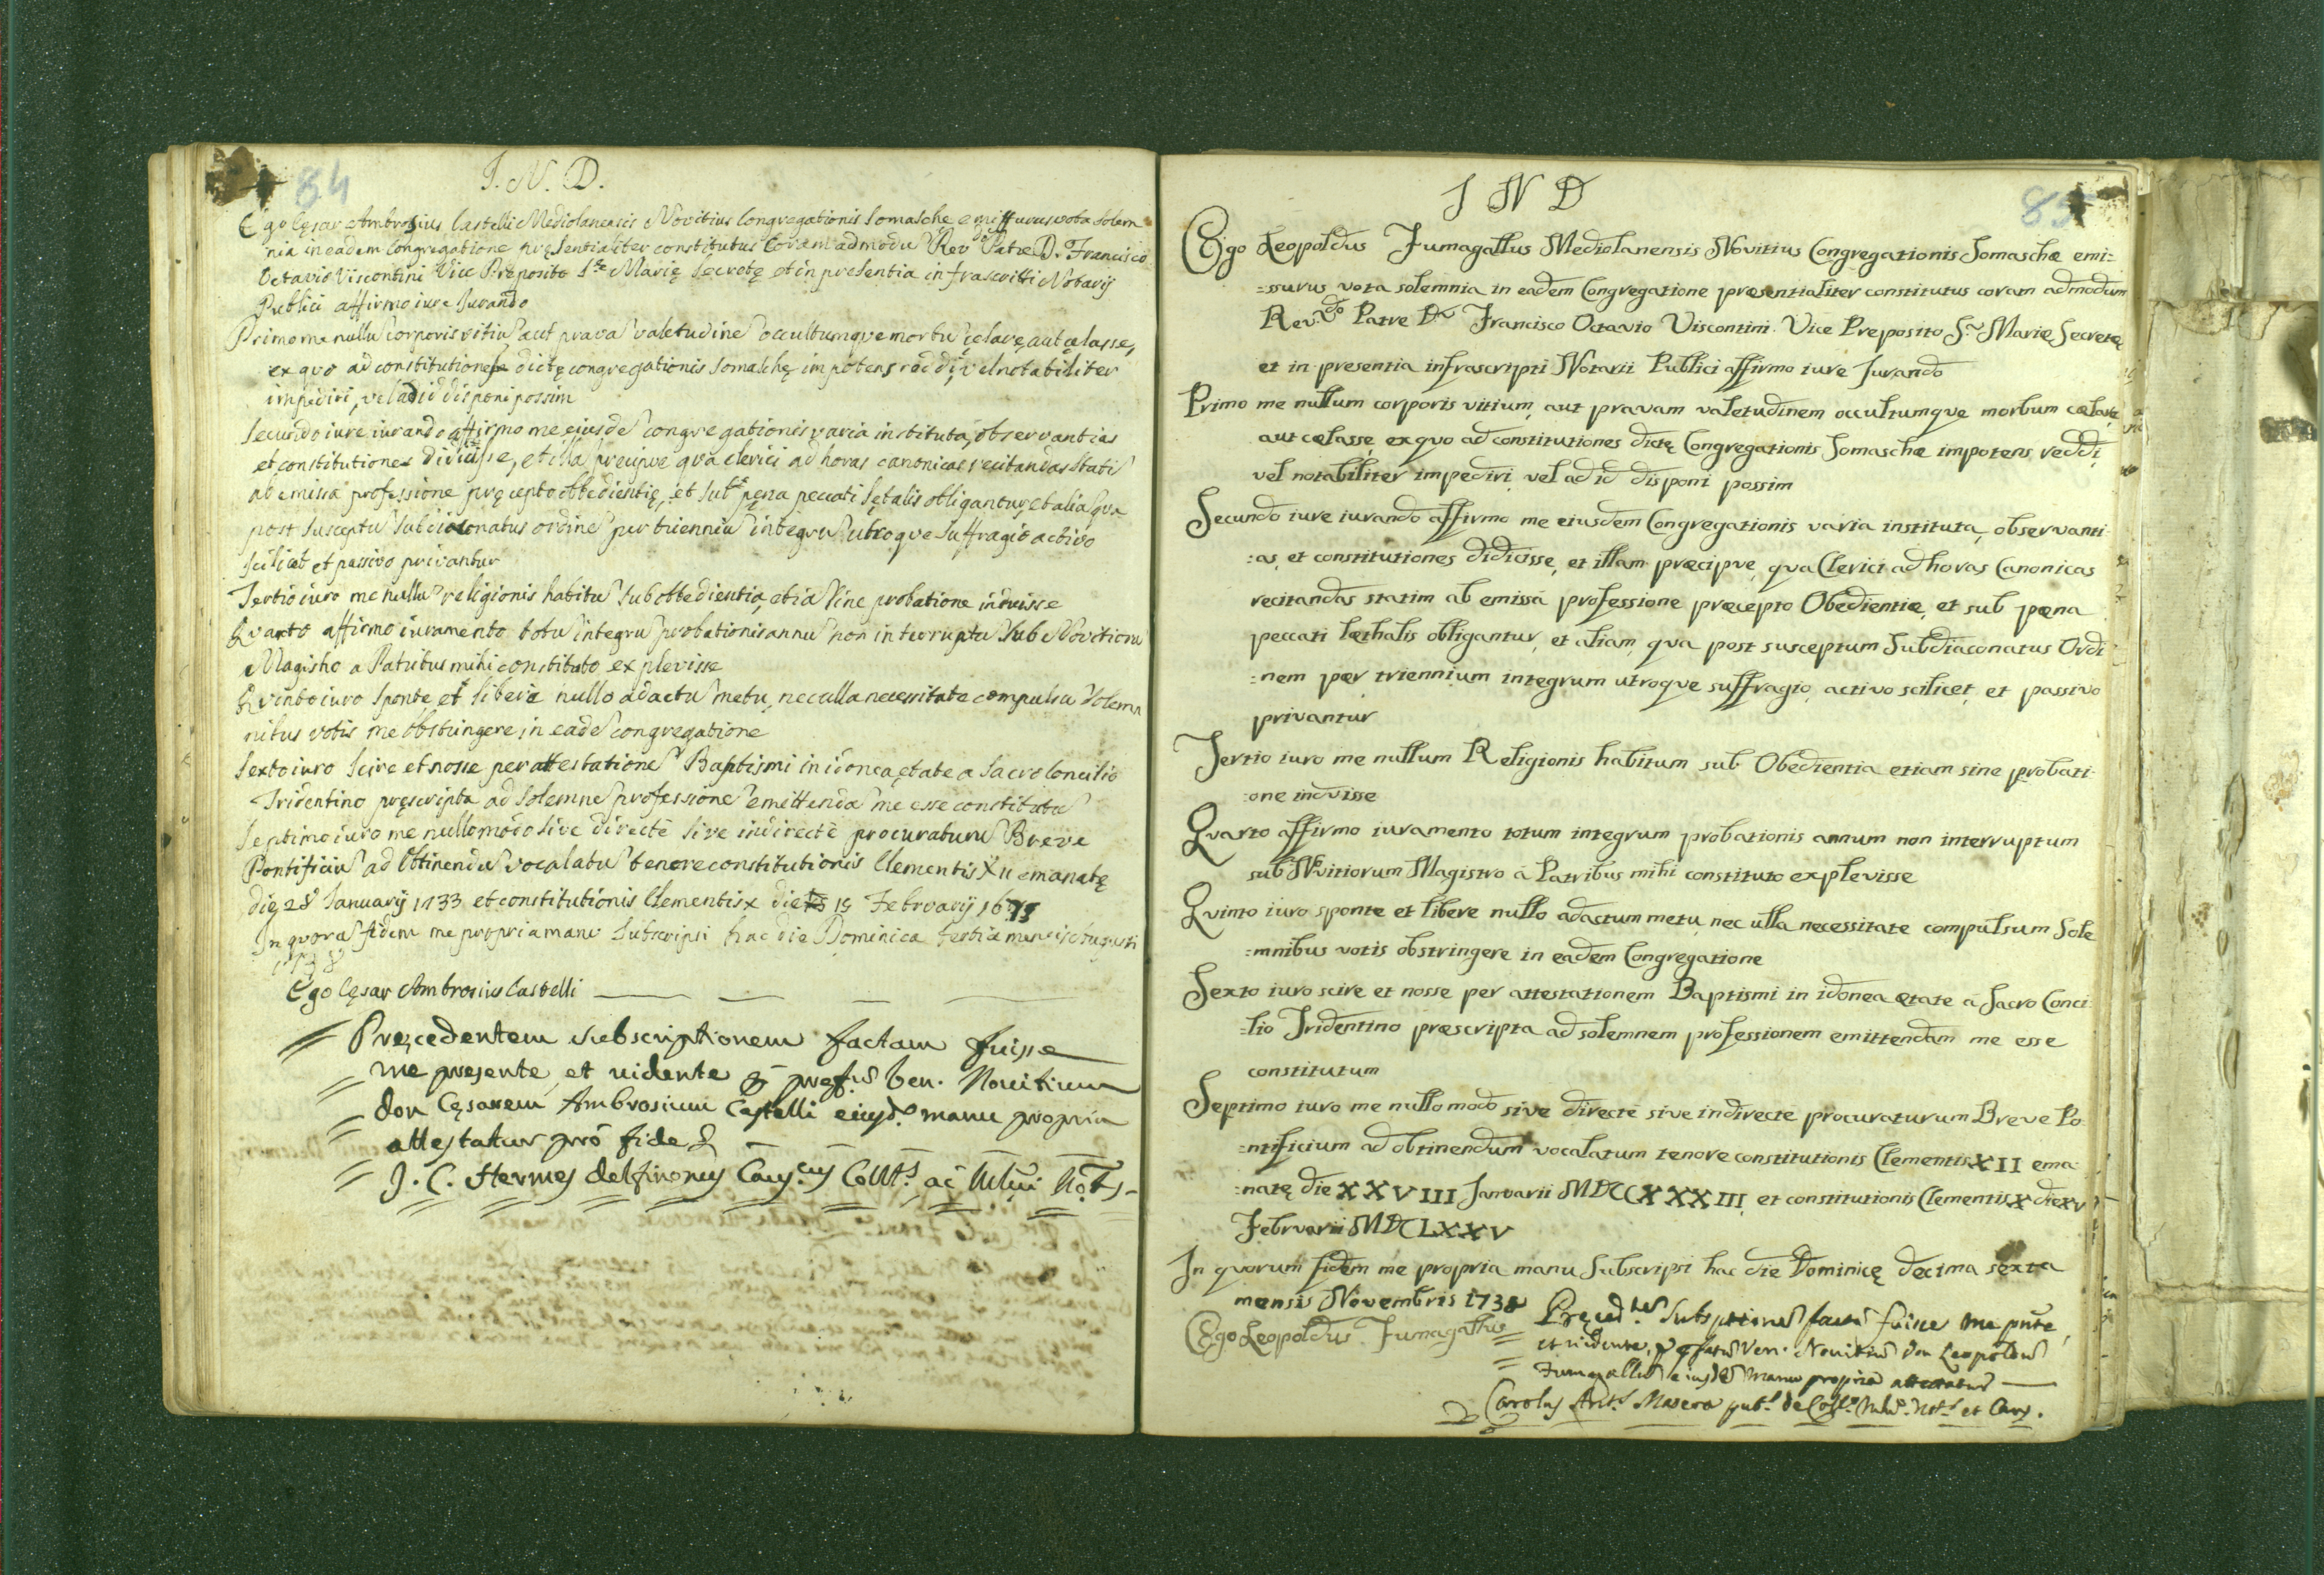 84
I. N. D.
Ego Cęsar Ambrosius Castelli Mediolanensis Novitius Congregationis Somasche emissurus vota solem
nia in eadem Congregatione pręsentialiter constitutus Coram admodũ Rev.do Patre D. Francisco
Octavio Viscontini Vice Preposito S.te Marię Secretę et in presentia infrascritti Notarij
Publici affirmo iure Jurando
Primo me nullũ corporis vitiũ aut pravã valetudinẽ occultumque morbũ cęlare, aut cęlasse,
ex quo ad constitutiones dictę congregationis Somaschę impotens reddi, vel notabiliter
impediri, vel ad id disponi possim
Secundo iure iurando affirmo me eiusdẽ congregationis varia instituta, observantias
et constitutiones didicisse, et illã precipue qua clerici ad horas canonicas recitandas statĩ
ab emissa professione pręcepto obbedientię, et sub pęna peccati lętalis obligantur, et aliã qua
post susceptũ subdiaconatus ordinẽ per trienniũ integrũ utroque suffragio activo
scilicet et passivo privantur
Tertio iuro me nullũ religionis habitũ sub obbedientia, etiã sine probatione induisse
Quarto affirmo iuramento totũ integrũ probationis annũ non interruptũ sub Novitiorũ
Magistro a Patribus mihi constituto explevisse
Quinto iuro sponte, et liberè nullo adactũ metu, nec ulla necessitate compulsũ solem
nibus votis me obstringere in eadẽ congregatione
Sexto iuro scire et nosse per attestationẽ Baptismi in idonea ętate a Sacro Concilio
Tridentino pręscripta ad solemnẽ professionẽ emittendã me esse constitutũ
Septimo iuro me nullo modo sive directè sive indirectè procuraturũ Breve
Pontificiũ ad obtinendũ vocalatũ tenore constitutionis Clementis XII emanatę
die 28 Januarij 1733 et constitutionis Clementis X die 15 Februarij 1675
In quorũ fidem me propria manu subscripsi hac die Dominica tertia mensis Augusti
1738
Ego Cęsar Ambrosius Castelli
Pręcedentem subscriptionem factam fuisse
me presente, et uidente p prefũ Ven. Nouitium
don Cęsarem Ambrosium Castelli eiusd. manu propria
attestatur pro fide &
J. C. Hermes Delfinonus Caus.cus Coll.s ac Mlni Not.s
85
I N D
Ego Leopoldus Fumagallus Mediolanensis Novitius Congregationis Somaschæ emi=
=ssurus vota solemnia in eadem Congregatione præsentialiter constitutus coram admodum
Rev.do Patre D. Francisco Octavio Viscontini Vice Preposito S. Mariæ Secretæ
et in presentia infrascripti Notarii Publici affirmo iure Jurando
Primo me nullum corporis vitium, aut pravam valetudinem occultumque morbum cælare,
aut cælasse, ex quo ad constitutiones dictę Congregationis Somaschæ impotens reddi,
vel notabiliter impediri, vel ad id disponi possim
Secundo iure iurando affirmo me eiusdem Congregationis varia instituta, observanti
:as, et constitutiones didicisse, et illam præcipue, qua Clerici ad horas Canonicas
recitandas statim ab emissa professione præcepto Obedientiæ, et sub pæna
peccati læthalis obligantur, et aliam, qua post susceptum Subdiaconatus Ordi
:nem per triennium integrum utroque suffragio, activo scilicet, et passivo
privantur
Tertio iuro me nullum Religionis habitum sub Obedientia etiam sine probati
:one induisse
Quarto affirmo iuramento totum integrum probationis annum non interruptum
sub Novitiorum Magistro à Patribus mihi constituto explevisse
Quinto iuro sponte et libere nullo adactum metu, nec ulla necessitate compulsum Sole
:mnibus votis obstringere in eadem Congregatione
Sexto iuro scire et nosse per attestationem Baptismi in idonea ætate à Sacro Conci
:lio Tridentino præscripta ad solemnem professionem emittendam me esse
constitutum
Septimo iuro me nullo modo sive directè sive indirecte procuraturum Breve Po
:ntificium ad obtinendum vocalatum tenore constitutionis Clementis XII ema
:natę die XXVIII Januarii MDCCXXXIII, et constitutionis Clementis X die XV
Februarii MDCLXXV
In quorum fidem me propria manu Subscripsi hac die Dominicę decima sexta
mensis Novembris 1738
Ego Leopoldus Fumagallus
Pręced.tem Subsptionẽ factã fuisse me pnte,
et uidente, p pfatũ Ven. Nouitiũ Don Leopoldũ
Fumagallũ eiusdẽ manu propria attestatur
Carolus Ant.s Masera pub.s de Coll.o Mlni Not.s et Caus.